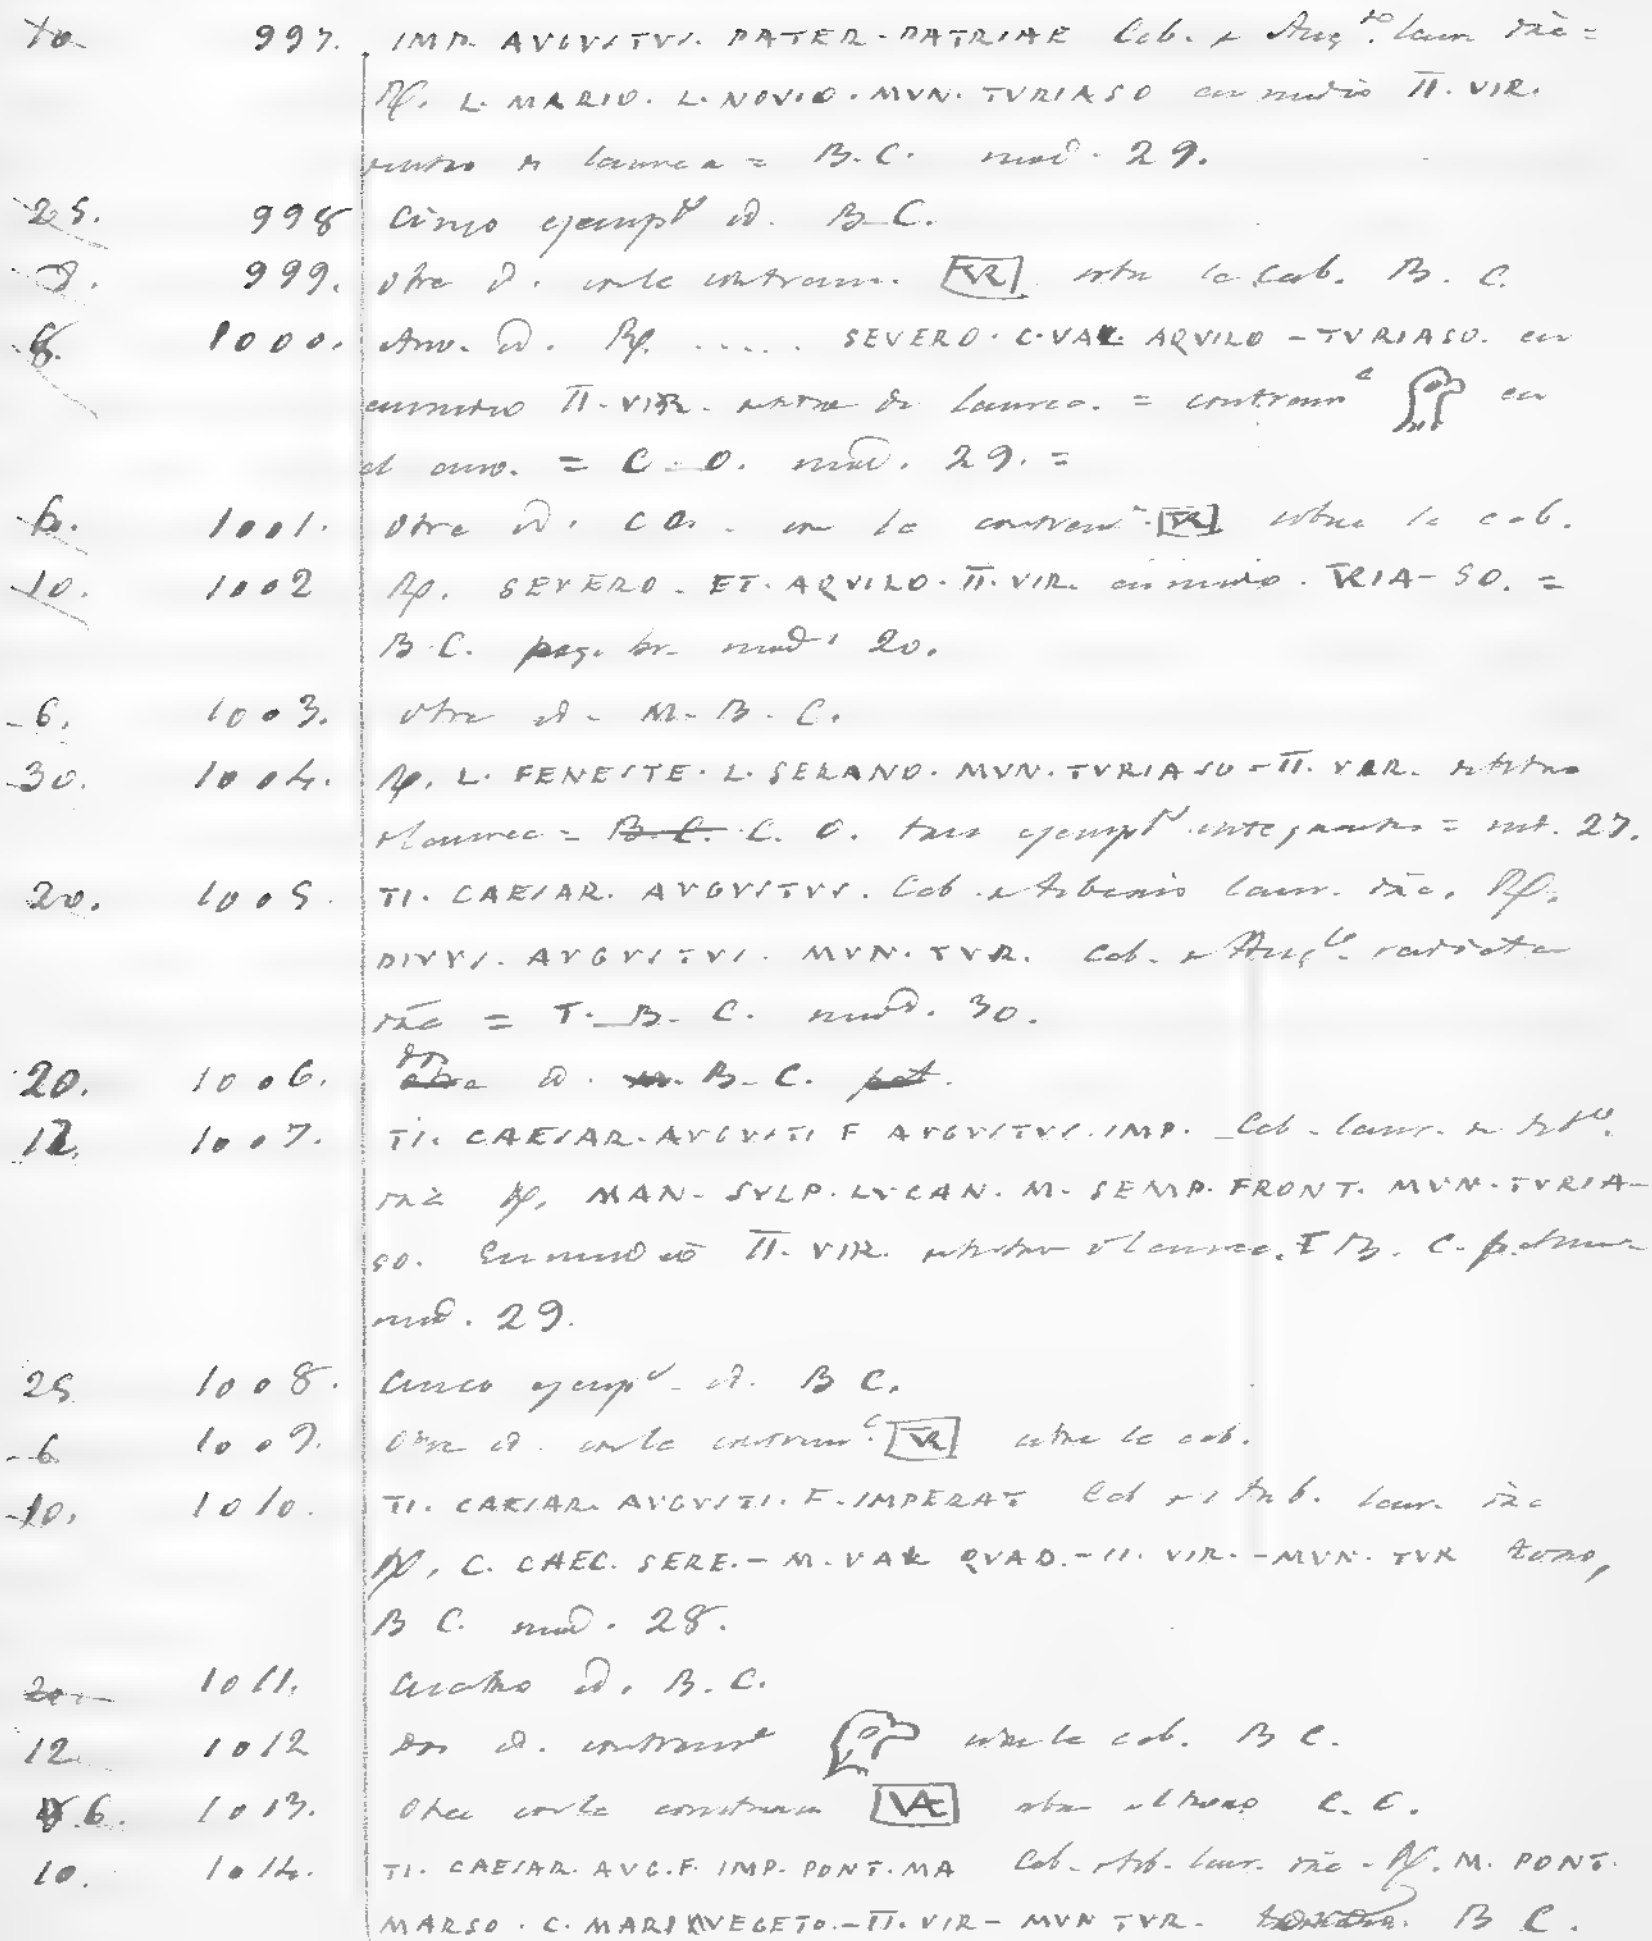 10. 997. IMP. AVGVSTVS. PATER-PATRIAE Cab. de Aug.to laur. dra =
Rf. L. MARIO. L. NOVIO. MVN. TVRIASO en medio II. VIR.
dentro de laurea = B.C. mod. 29.
25. 998 Cinco ejempls id. B.C.
8. 999. otra id. con la contram. sobre la Cab. B. C.
8. 1000. Anv. id. Rf. ..... SEVERO. C. VAL. AQVILO - TVRIASO. en
en medio II-VIR. dentro de laurea. = contram.a en
el anv. = C. O. mod. 29. =
6. 1001. otra id. C O. con la contram. sobre la cab.
10. 1002 Rf. SEVERO. ET. AQVILO. II. VIR. en medio. TRIA-SO. =
B.C. peq. br. mod. 20.
6. 1003. otra id. M. B. C.
30. 1004. Rf. L. FENESTE. L. SERANO. MVN. TVRIASO - II. VIR. dentro
d laurea = B. C. C. O. tres ejempls = md. 27.
20. 1005. TI. CAESAR. AVGVSTVS. Cab. de Tiberio laur. dra. Rf.
DIVVS. AVGVSTVS. MVN. TVR. Cab. de Aug.to radiata
dra = T. B. C. mod. 30.
20. 1006. dos otra id. B. C.
12. 1007. TI. CAESAR. AVGVSTI F AVGVSTVS. IMP. Cab. laur. de Tib.o
dra Rf. MAN. SVLP. LVCAN. M. SEMP. FRONT. MVN. TVRIA-
SO. En medio II. VIR. dentro d laurea. B. C.
mod. 29.
25 1008. Cinco ejempls id. B C.
6 1009. Otra id. con la contram.a sobre la cab.
10. 1010. TI. CAESAR. AVGVSTI. F. IMPERAT Cab de Tib. laur. dra
Rf. C. CAEC. SERE. - M. VAL QVAD. - II. VIR. - MVN. TVR toro,
B C. mod. 28.
20 1011. Cuatro id. B. C.
12. 1012 Dos id. contram.a sobre la cab. B C.
6. 1013. Otra con la contram sobre el toro C. C.
10. 1014. TI. CAESAR. AVG. F. IMP. PONT. MA Cab. de Tib. laur. dra - Rf. M. PONT.
MARSO. C. MARI VEGETO. - II. VIR - MVN TVR. B C.